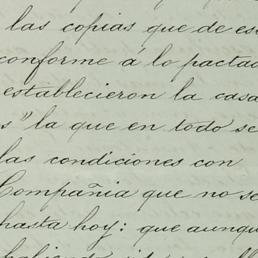 las copias que de es
conforme á lo pactad
establecieron la casa
s" la que en todo se
las condiciones con
Compañia que no se
hasta hoy: que aunqu